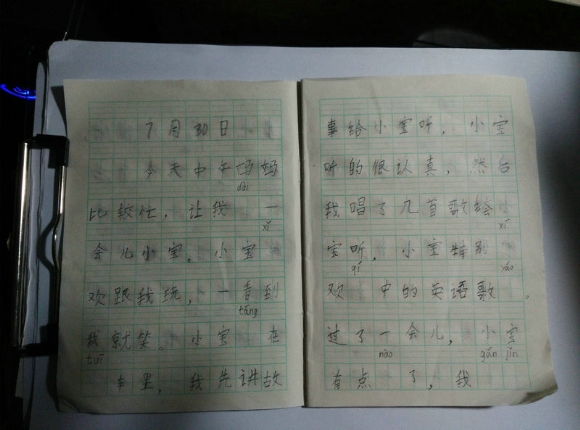 7月30日
今天中午妈妈
dài
比较忙，让我 一
xǐ
会儿小宝，小宝
欢跟我玩，一看到
tǎng
我就笑。小宝 在
tuī
车里，我先讲故
事给小宝听，小宝
听的很认真，然后
我唱了几首歌给小
xǐ
宝听，小宝特别
欢 中的英语歌。
过了一会儿，小宝
nào gǎn jǐn
有点 了，我